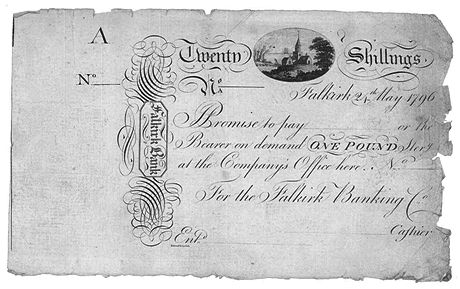 A
Twenty Shillings.
No. No.
Falkirk 24th May 1796
I Promise to pay or the
Bearer on demand ONE POUND Ster.g
at the Company's Office here. No.
For the Falkirk Banking Co.
Ent.d Cashier
Falkirk Bank